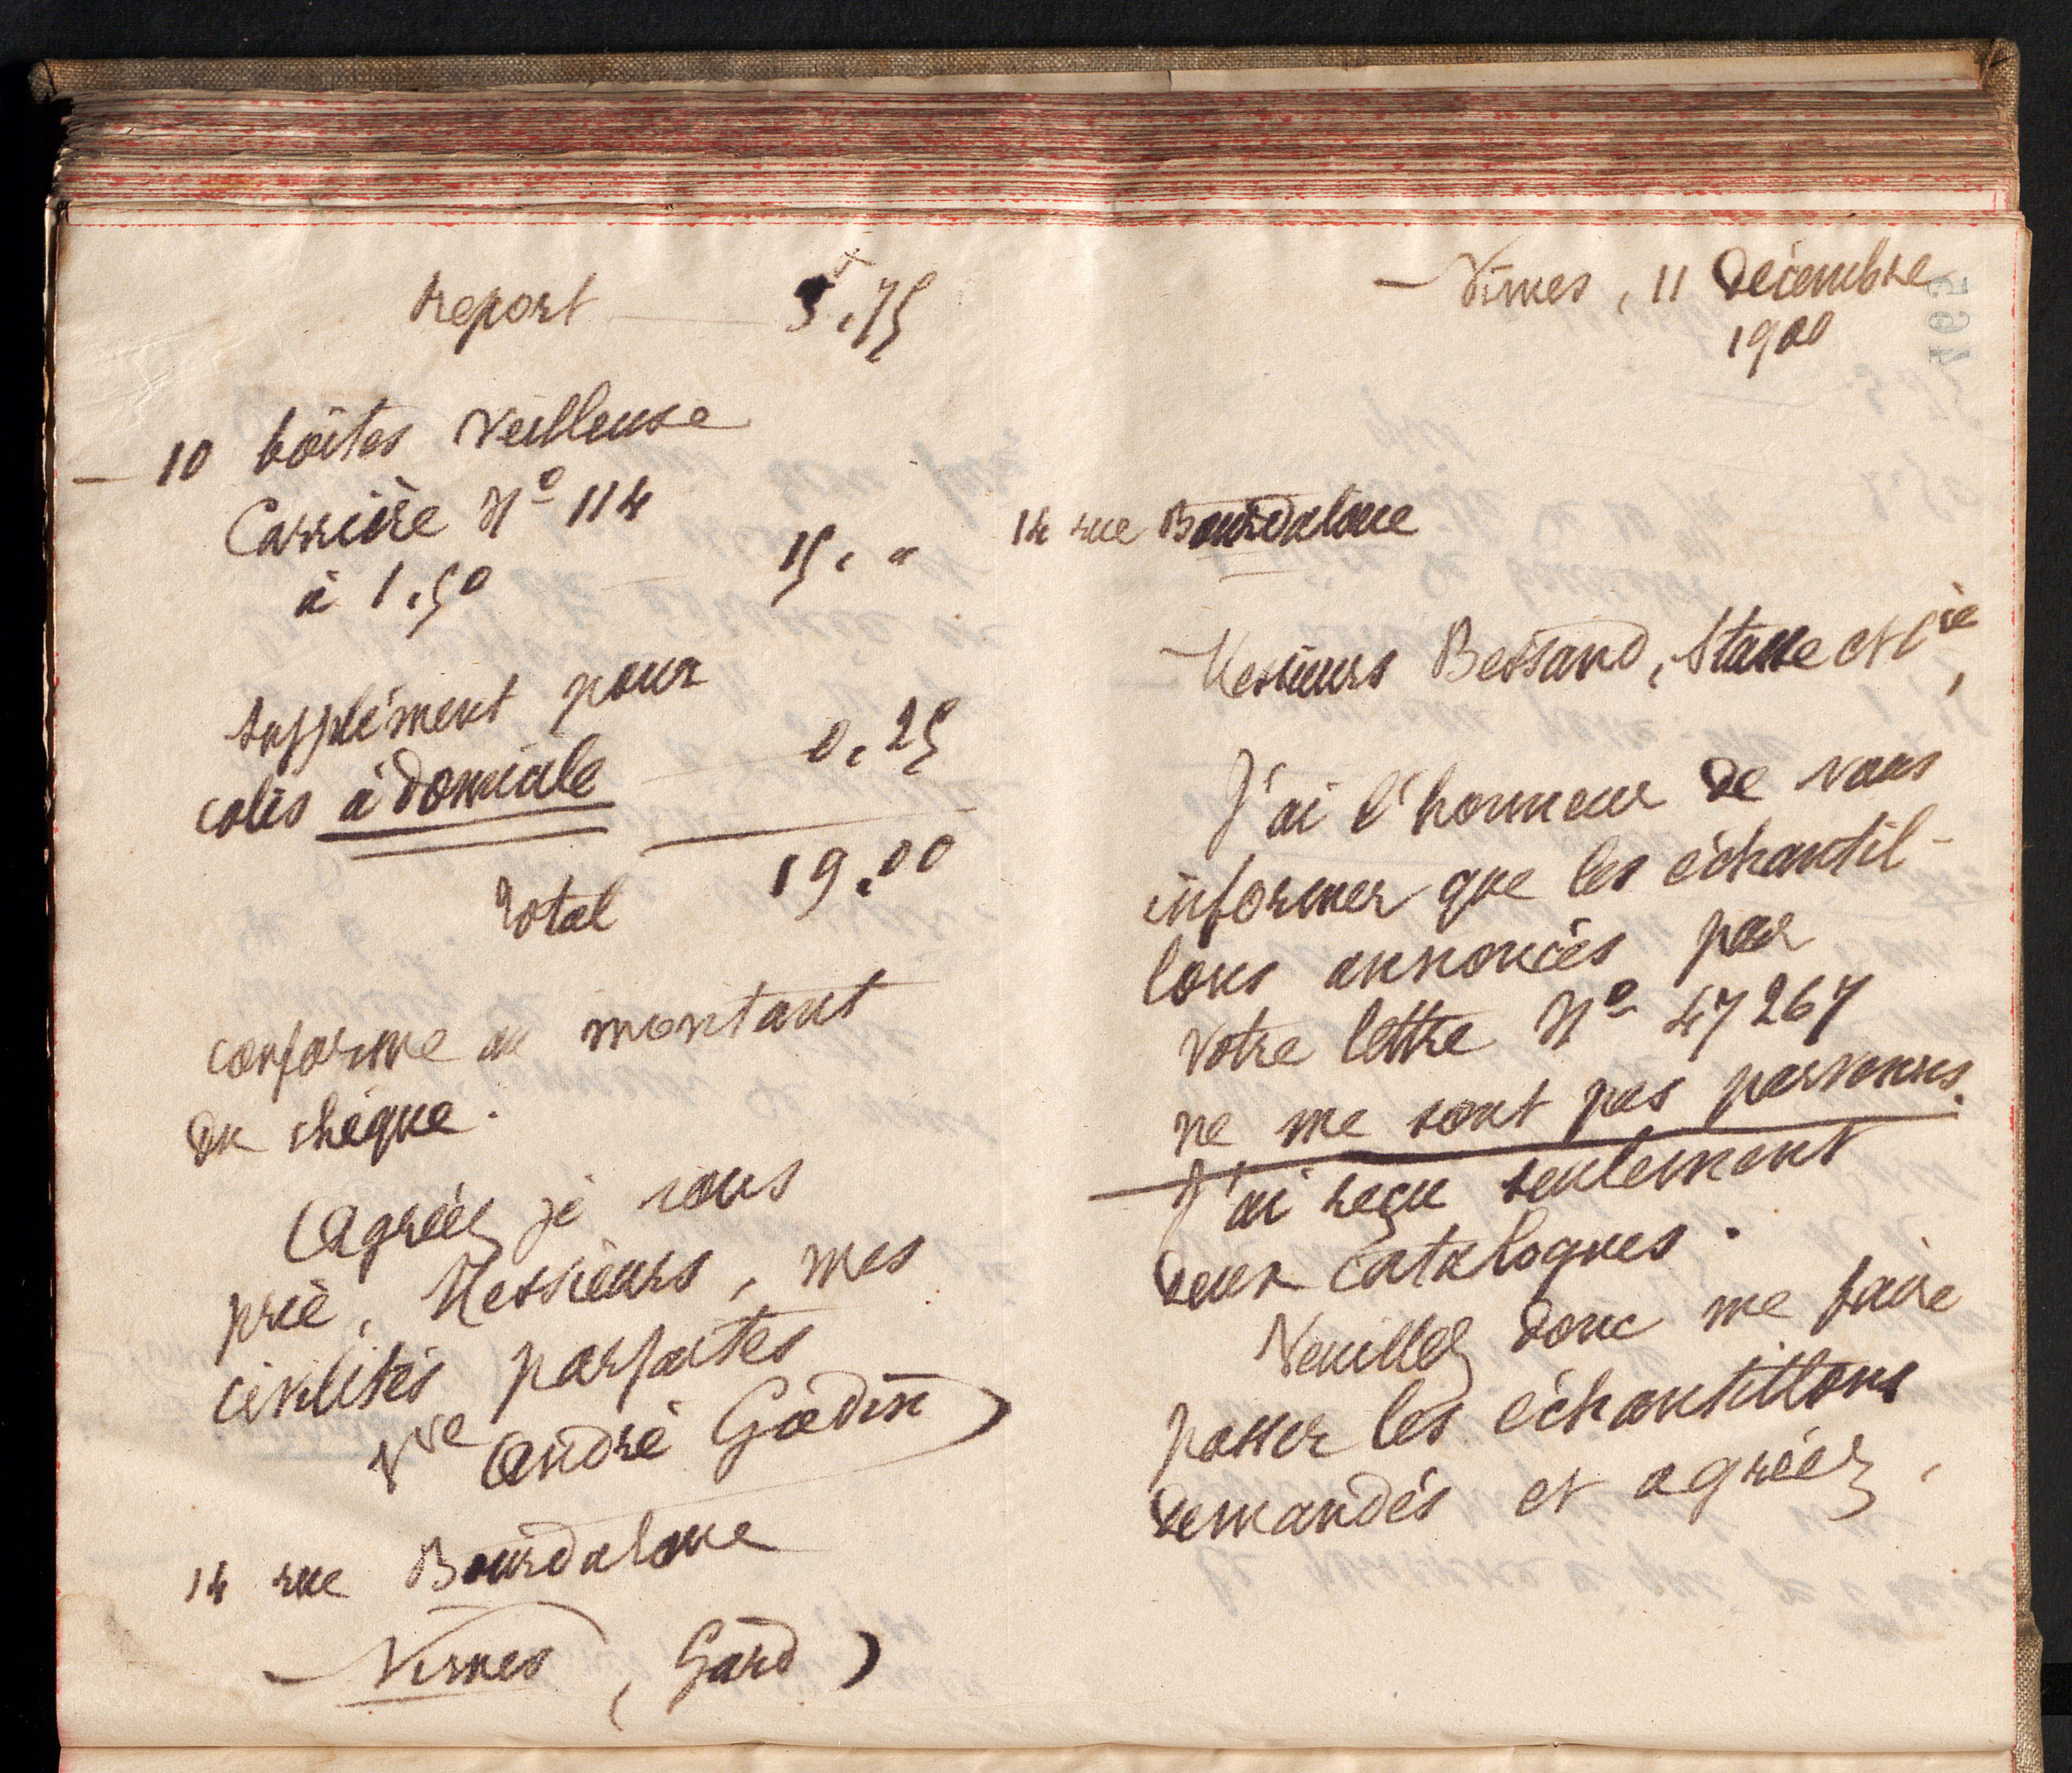 report 3.75
10 boîtes Veilleuse
Carrière Nº 114
à 1.50 15. "
supplément pour
colis à domicile 0.25
Total 19.00
conforme au montant
du chèque.
Agréez je vous
prie, Messieurs, mes
civilités parfaites
Vve André Godin
14 rue Bourdaloue
Nimes (Gard)
Nîmes, 11 décembre
1900
14 rue Bourdaloue
Messieurs Bessand, Stasse et Cie,
J'ai l'honneur de vous
informer que les échantil-
lons annoncés par
votre lettre Nº 47267
ne me sont pas parvenus.
J'ai reçu seulement
deux catalogues.
Veuillez donc me faire
passer les échantillons
demandés et agréez,